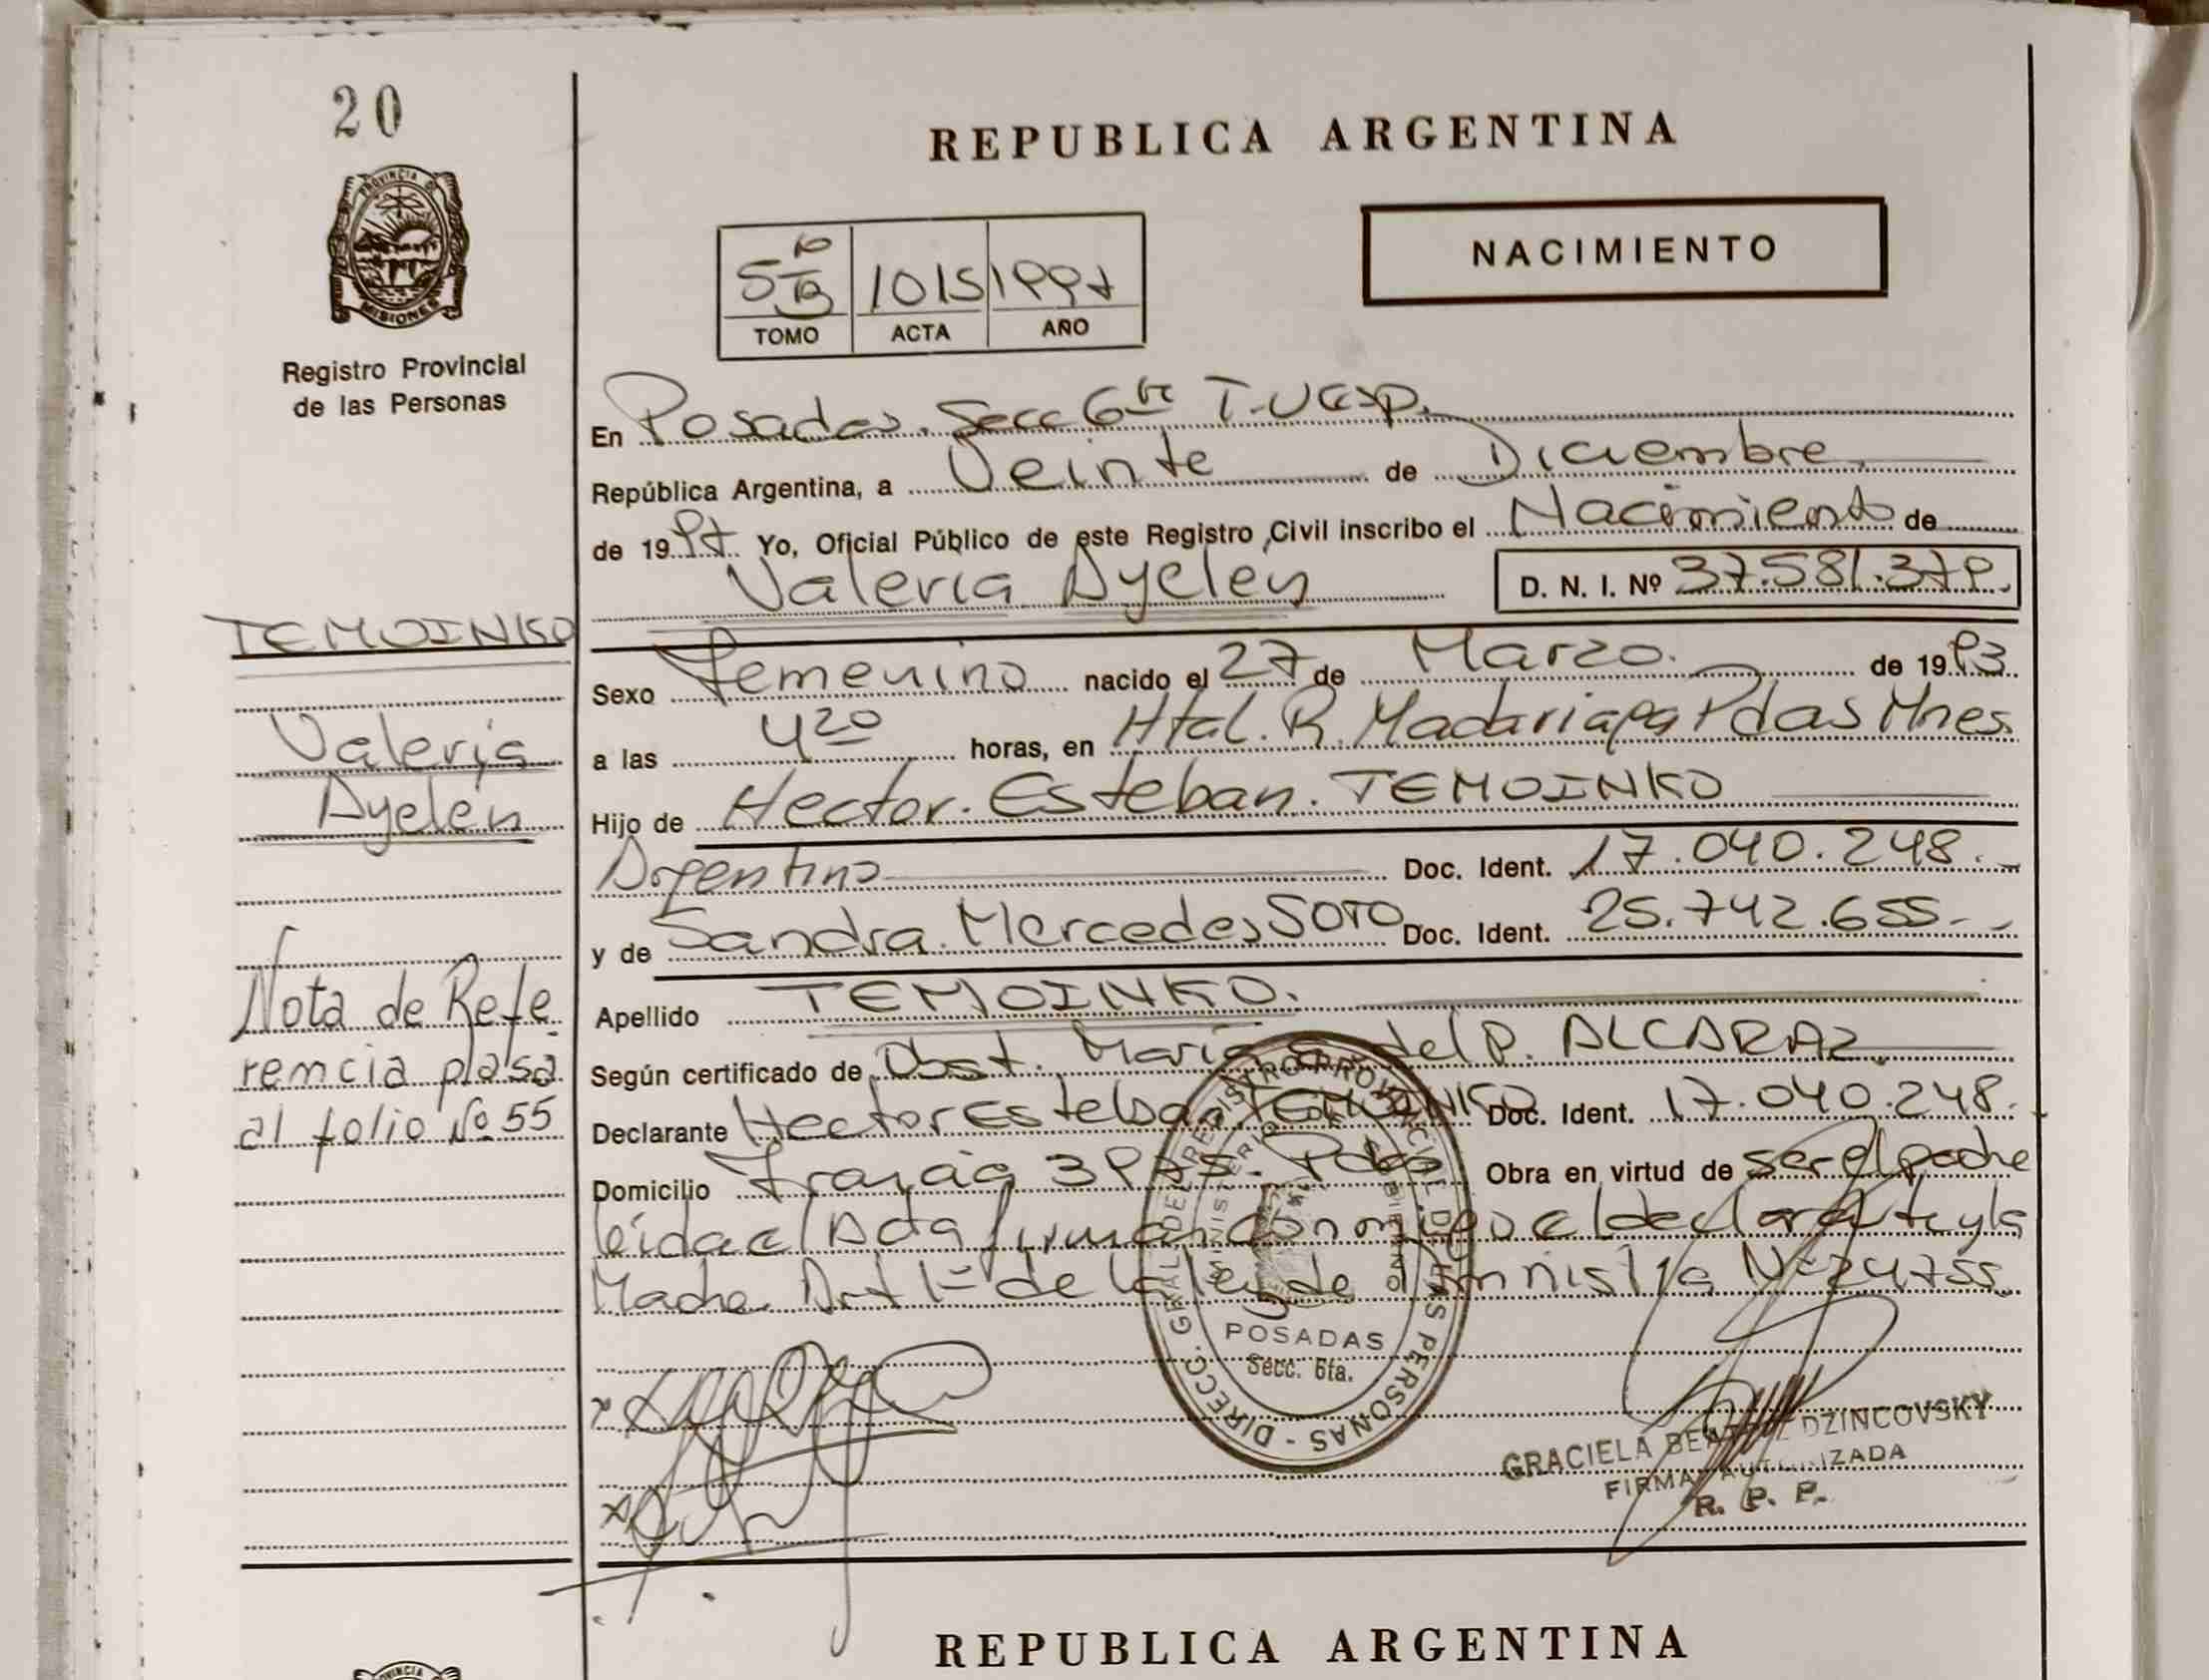 20
PROVINCIA DE
MISIONES
Registro Provincial
de las Personas
REPUBLICA ARGENTINA
NACIMIENTO
5 1015 1997
TOMO ACTA AÑO
En Posadas. Secc 6ta
República Argentina, a Veinte de Diciembre
de 1997 Yo, Oficial Público de este Registro Civil inscribo el Nacimiento de
Valeria Ayelen D. N. I. Nº 37.581.379.
TEMOINKO
Valeria
Ayelen
Sexo Femenino nacido el 27 de Marzo. de 1993
a las 4 20 horas, en Htal. R. Madariaga Pdas Mnes.
Hijo de Hector. Esteban. TEMOINKO
Argentino Doc. Ident. 17.040.248.
y de Sandra Mercedes SOTO Doc. Ident. 25.742.655.
Apellido TEMOINKO.
Según certificado de Obst. Maria del P. ALCARAZ.
Declarante Hector Esteban TEMOINKO Doc. Ident. 17.040.248.
Domicilio Francia 3975. Pdas Obra en virtud de ser el padre
leida el Acta firman conmigo el declarante y la
Madre. Art 1º de la ley de Amnistia Nº 24755.
Nota de Refe
rencia pasa
al folio Nº 55
DIRECC. GRAL. DEL REGISTRO PROVINCIAL DE LAS PERSONAS
MINISTERIO DE GOBIERNO
POSADAS
Secc. 6ta.
GRACIELA DZINCOVSKY
FIRMA AUTORIZADA
R. P. P.
REPUBLICA ARGENTINA
PROVINCIA